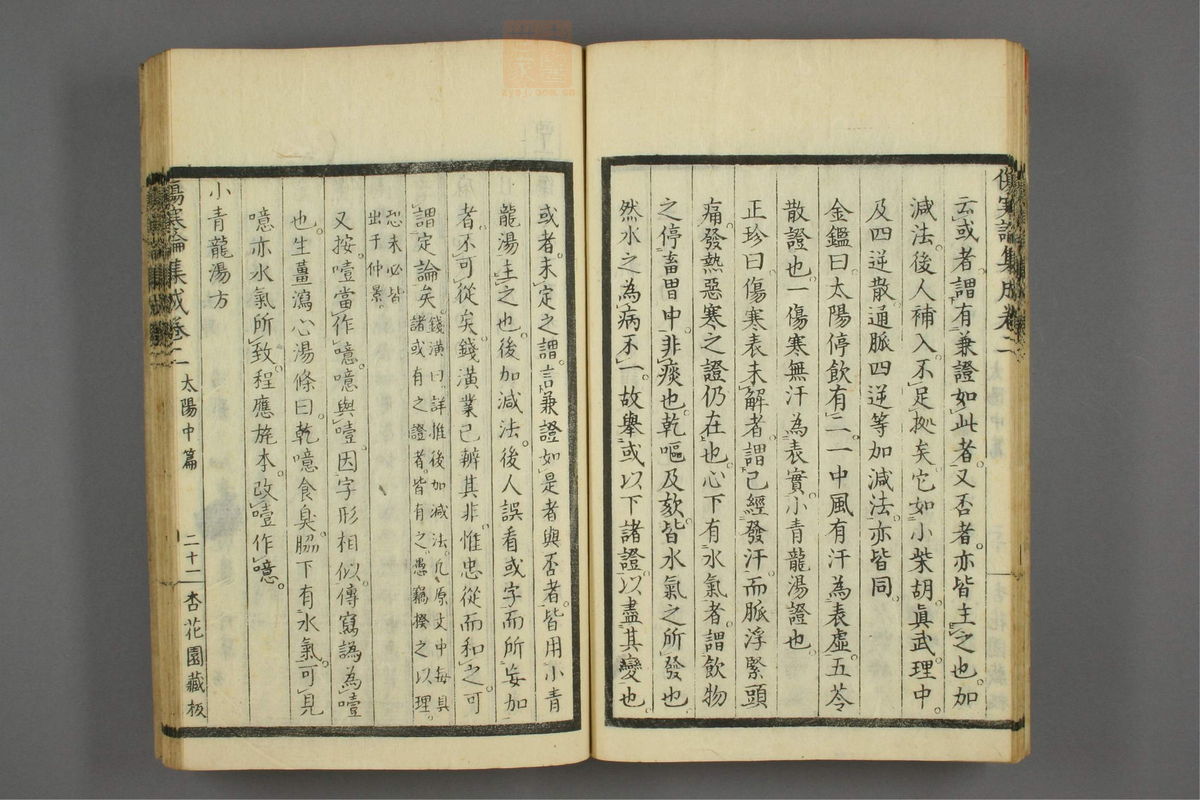 云或者謂有兼證如此者又否者亦皆主之也加
減法後人補入不足據矣它如小柴胡眞武理中
及四逆散通脈四逆等加減法亦皆同
金鑑曰太陽停飲有二一中風有汗為表虛五苓
散證也一傷寒無汗為表實小青龍湯證也
正珍曰傷寒表未解者謂已經發汗而脈浮緊頭
痛發熱惡寒之證仍在也心下有水氣者謂飲物
之停畜胃中非痰也乾嘔及欬皆水氣之所發也
然水之為病不一故舉或以下諸證以盡其變也
或者未定之謂言兼證如是者與否者皆用小青
龍湯主之也後加減法後人誤看或字而所妄加
者不可從矣錢潢業已辨其非惟忠從而和之可
謂定論矣錢潢曰詳推後加減法凡原文中每具
諸或有之證者皆有之愚竊揆之以理
恐未必皆
出于仲景
又按噎當作噫噫與噎因字形相似傳寫譌為噎
也生薑瀉心湯條曰乾噫食臭脇下有水氣可見
噫亦水氣所致程應旄本改噎作噫
小青龍湯方
傷寒論集成卷二 太陽中篇 二十二 杏花園藏板